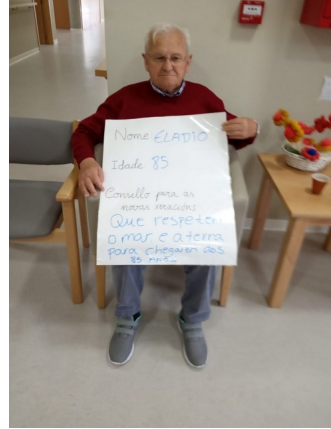 Nome ELADIO
Idade 85
Consello para as
novas xeracións
Que respeten
o mar e a terra
para chegaren aos
85 anos